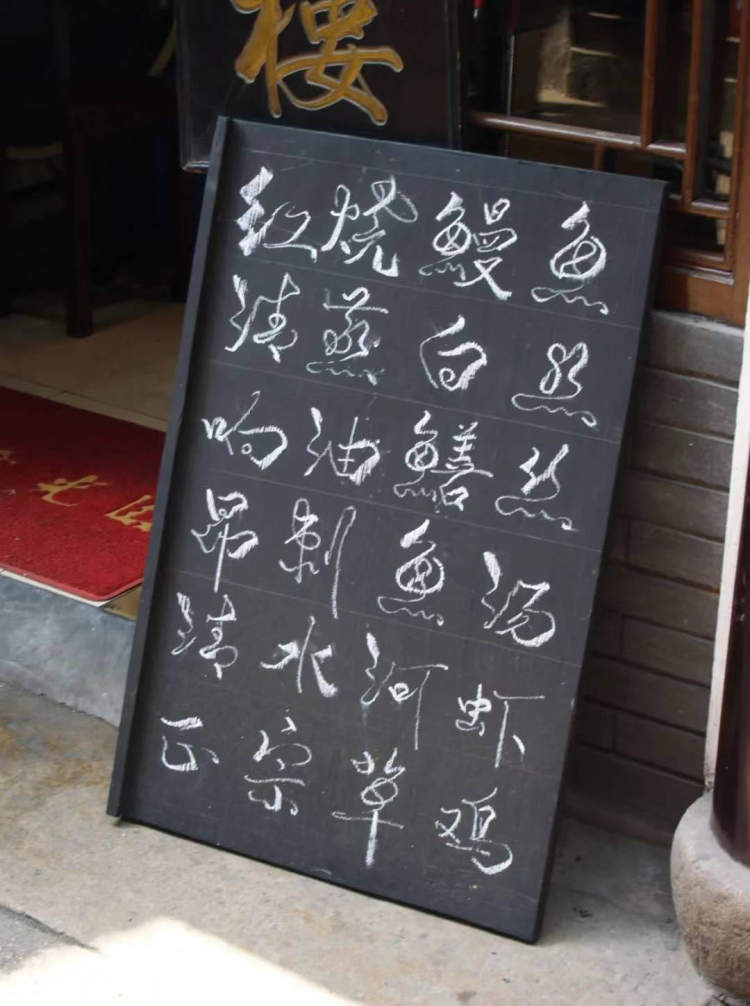 楼
红烧鳗鱼
清蒸白丝
响油鳝丝
昂刺鱼汤
清水河虾
正宗草鸡
光临